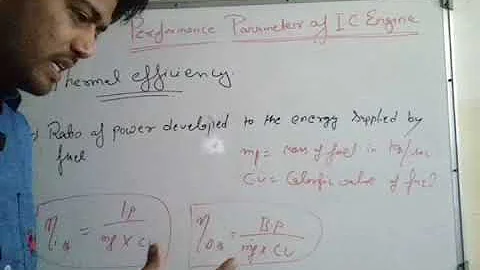 Performance Parameter of I C Engine
Thermal efficiency
Ratio of power developed to the energy supplied by
fuel
mf = mass of fuel in kg/sec
CV = Calorific value of fuel
η = IP / mf × CV
η = BP / mf × CV